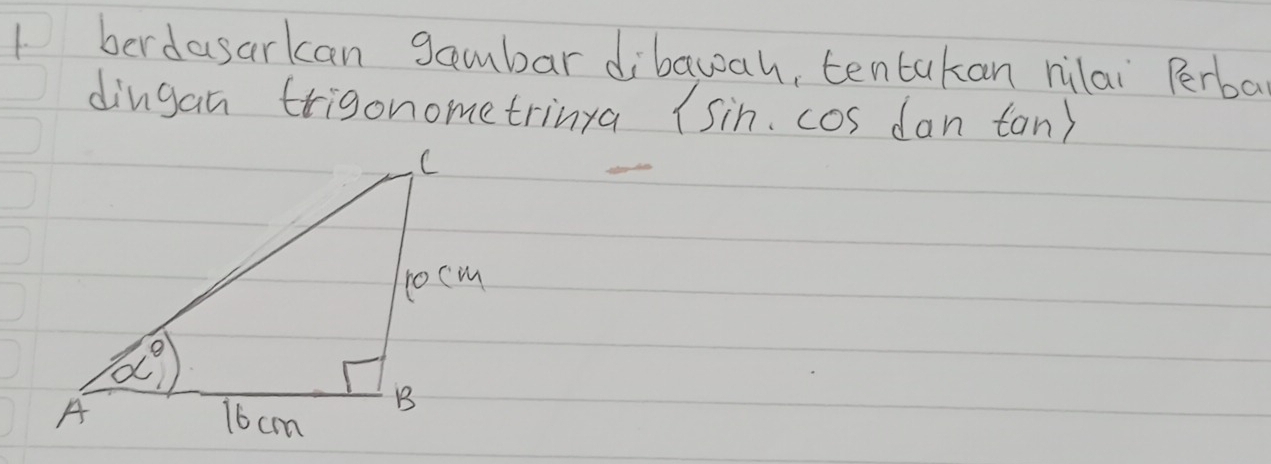 1. berdasarkan gambar dibawah, tentukan nilai Perba
dingan trigonometrinya (sin. cos dan tan)
C
10 cm
α°
A
B
16 cm